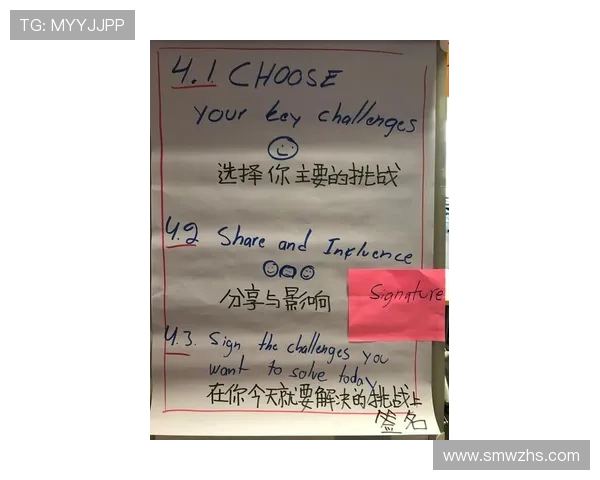 TG: MYYJJPP
4.1 CHOOSE
your key challenges
选择你主要的挑战
4.2 Share and Influence
分享与影响
Signature
4.3. Sign the challenges you
want to solve today
在你今天就要解决的挑战上
签名
www.smwzhs.com